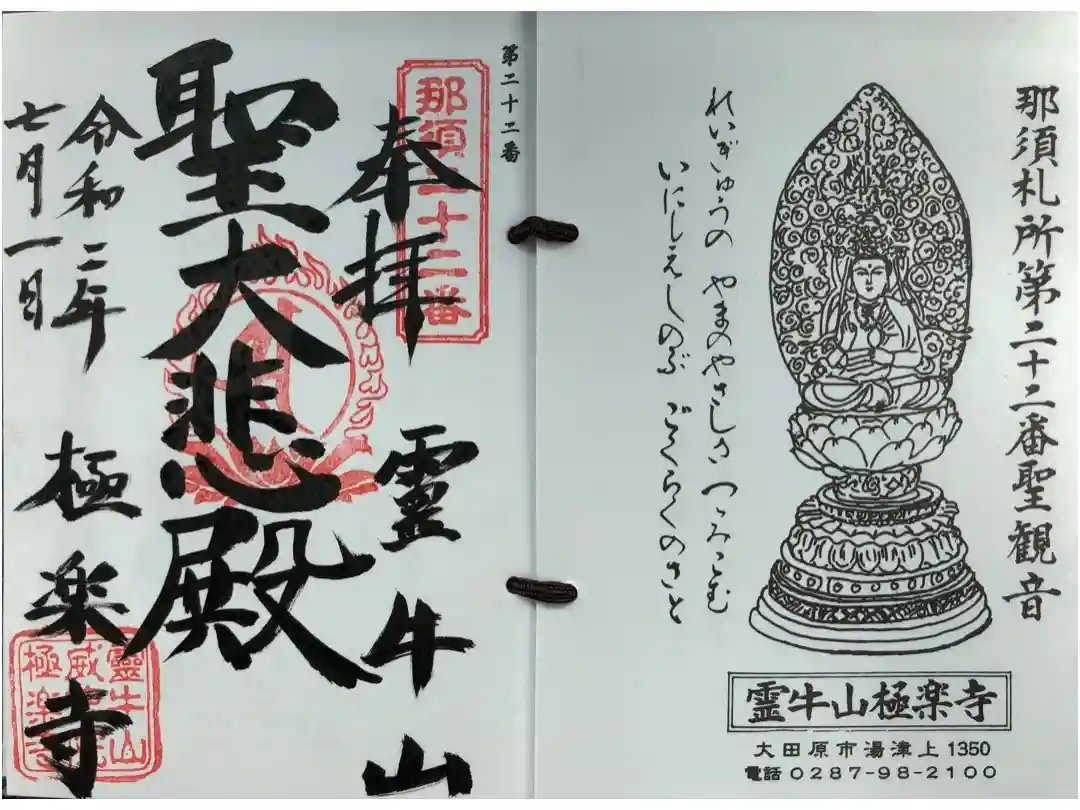 那須札所第二十二番聖観音
れいぎゅうの やまのやさしさ つゝみこむ
いにしえしのぶ ごくらくのさと
霊牛山極楽寺
大田原市湯津上1350
電話0287-98-2100
第二十二番
那須二十二番
奉拝 霊牛山
聖大悲殿
令和二年
七月一日
極楽寺
靈牛山
極楽寺